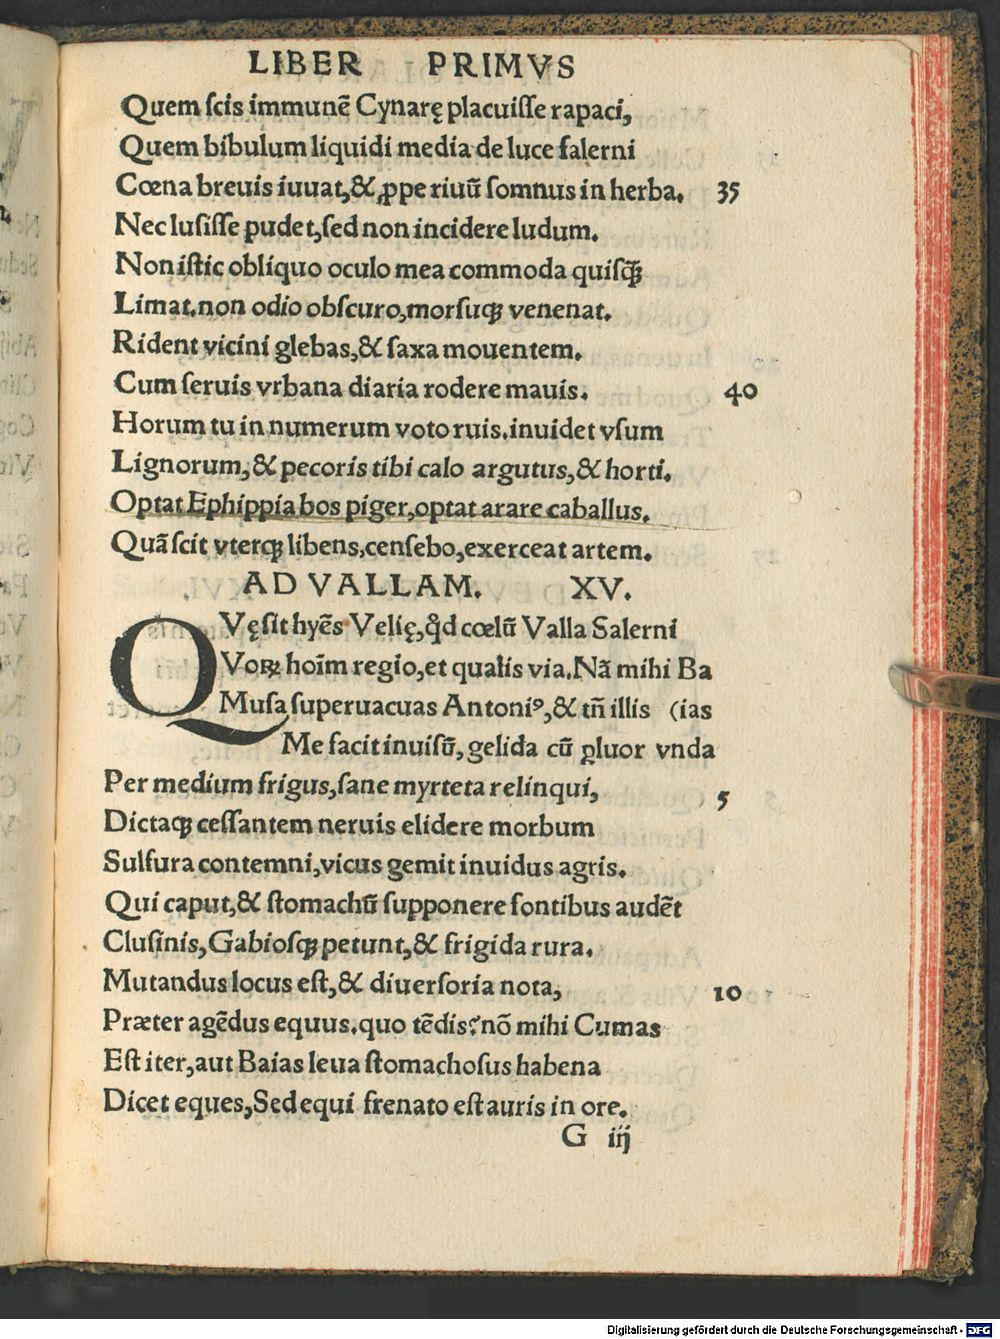 LIBER PRIMVS
Quem ſcis immunē Cynarę placuiſſe rapaci,
Quem bibulum liquidi media de luce falerni
Cœna breuis iuuat,& ꝓpe riuū ſomnus in herba. 35
Nec luſiſſe pudet,ſed non incidere ludum.
Non iſtic obliquo oculo mea commoda quiſꝗ̃
Limat.non odio obſcuro,morſuqꝫ venenat.
Rident vicini glebas,& ſaxa mouentem.
Cum ſeruis vrbana diaria rodere mauis. 40
Horum tu in numerum voto ruis.inuidet vſum
Lignorum,& pecoris tibi calo argutus,& horti.
Optat Ephippia bos piger,optat arare caballus.
Quā ſcit vterqꝫ libens,cenſebo,exerceat artem.
AD VALLAM. XV.
QVę ſit hyēs Velię,ꝗd cœlū Valla Salerni
Voꝝ hoīm regio,et qualis via.Nā mihi Ba
Muſa ſuperuacuas Antoniꝰ,& tñ illis (ias
Me facit inuiſū,gelida cū ꝑluor vnda
Per medium frigus,ſane myrteta relinqui, 5
Dictaqꝫ ceſſantem neruis elidere morbum
Sulfura contemni,vicus gemit inuidus ægris.
Qui caput,& ſtomachū ſupponere fontibus audēt
Cluſinis,Gabioſqꝫ petunt,& frigida rura.
Mutandus locus eſt,& diuerſoria nota, 10
Præter agēdus equus.quo tēdis?nō mihi Cumas
Eſt iter,aut Baias leua ſtomachoſus habena
Dicet eques,Sed equi frenato eſt auris in ore.
G iij
Digitalisierung gefördert durch die Deutsche Forschungsgemeinschaft - DFG